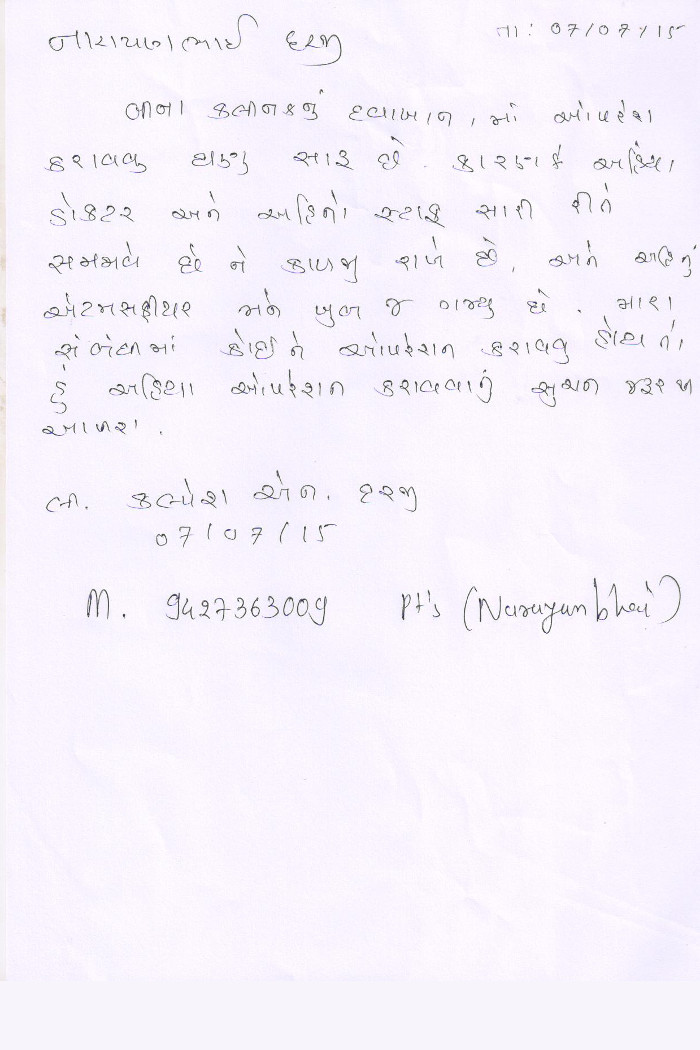 નારાયણભાઈ દરજી તા: 07/07/15
દવાખાન, માં ઓપરેશ
કરાવવુ ઘણુ સારૂ છે. કારણકે અહિંયા
ડોકટર અને અહિનો સ્ટાફ સારી રીતે
સમજાવે છે ને કાળજી રાખે છે, અને અહિનું
એટમસફીયર મને ખુબ જ ગમ્યુ છે. મારા
સંબંધમાં કોઈને ઓપરેશન કરાવવુ હોય તો,
હું અહિયા ઓપરેશન કરાવવાનું સુચન જરૂર થી
આપીશ.
લી. કલ્પેશ એન. દરજી
07/07/15
M. 9427363009 Pt's (Narayanbhai)